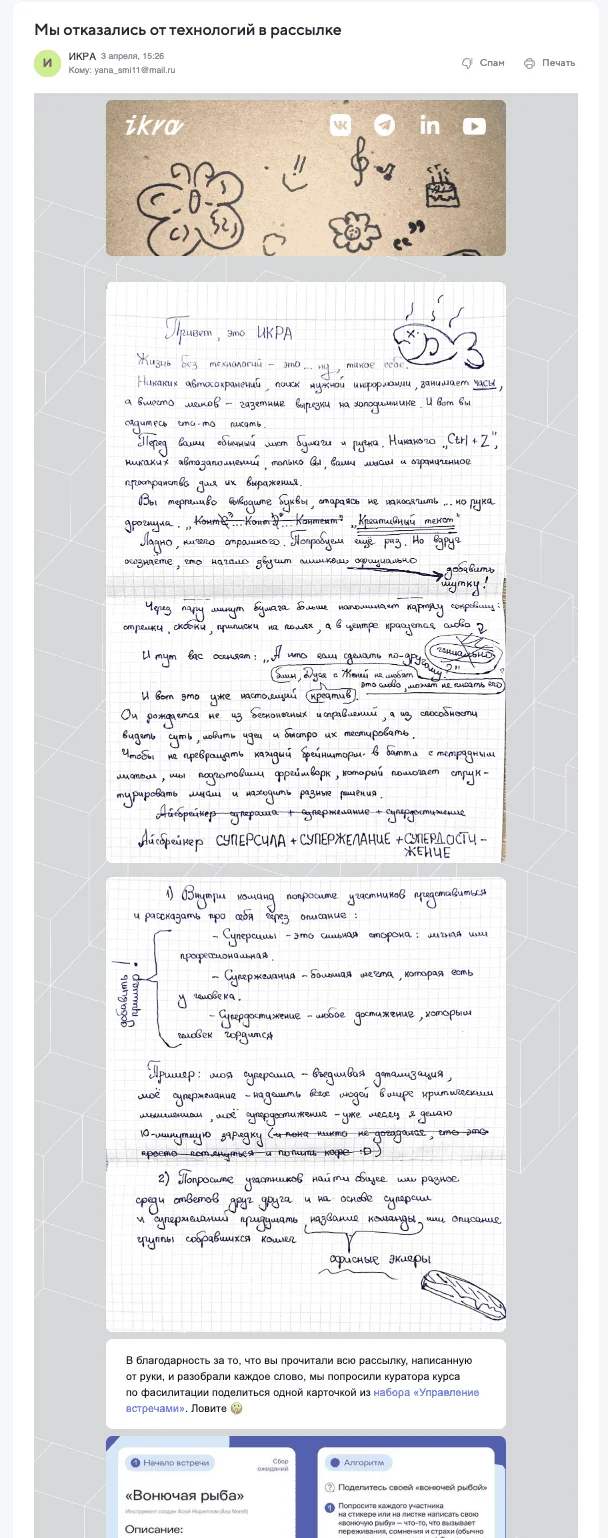 Мы отказались от технологий в рассылке
И
ИКРА 3 апреля, 15:26
Кому: yana_smi11@mail.ru
Спам
Печать
ikra
Привет, это ИКРА
Жизнь без технологий – это ... ну, такое себе.
Никаких автосохранений, поиск нужной информации, занимает часы,
а вместо мемов – газетные вырезки на холодильнике. И вот вы
садитесь что-то писать.
Перед вами обычный лист бумаги и ручка. Никакого „Ctrl + Z",
никаких автозаполнений, только вы, ваши мысли и ограниченное
пространство для их выражения.
Вы терпеливо выводите буквы, стараясь не накосячить ... но рука
дрогнула. „Конте... Конт... Контент" „Креативный текст"
Ладно, ничего страшного. Попробуем ещё раз. Но вдруг
осознаёте, что начало звучит слишком официально
добавить
шутку!
Через пару минут бумага больше напоминает карту сокровищ:
стрелки, скобки, приписки на полях, а в центре красуется слово
гениально
И тут вас осеняет: „А что если сделать по-другому?"
блин, Дуся с Женей не любят
это слово, может не писать его
И вот это уже настоящий креатив.
Он рождается не из бесконечных исправлений, а из способности
видеть суть, ловить идеи и быстро их тестировать.
Чтобы не превращать каждый брейншторм в баттл с тетрадным
листом, мы подготовили фреймворк, который помогает струк-
турировать мысли и находить разные решения.
Айсбрейкер суперсила + супержелание + супердостижение
Айсбрейкер СУПЕРСИЛА + СУПЕРЖЕЛАНИЕ + СУПЕРДОСТИ-
ЖЕНИЕ
1) Внутри команд попросите участников представиться
и рассказать про себя через описание:
- Суперсилы - это сильная сторона: личная или
профессиональная.
- Супержелания - большая мечта, которая есть
у человека.
добавить
пример!
- Супердостижение - любое достижение, которым
человек гордится
Пример: моя суперсила – въедливая детализация,
моё супержелание - наделить всех людей в мире критическим
мышлением, моё супердостижение - уже месяц я делаю
10-минутную зарядку (и пока никто не догадался, что это
просто потянуться и попить кофе :D)
2) Попросите участников найти общее или разное
среди ответов друг друга и на основе суперсил
и супержеланий придумать название команды, или описание
группы собравшихся коллег
офисные эклеры
В благодарность за то, что вы прочитали всю рассылку, написанную
от руки, и разобрали каждое слово, мы попросили куратора курса
по фасилитации поделиться одной карточкой из набора «Управление
встречами». Ловите
1 Начало встречи
Сбор
ожиданий
«Вонючая рыба»
Описание:
Алгоритм
? Поделитесь своей «вонючей рыбой»
1 Попросите каждого участника
на стикере или на листке написать свою
«вонючую рыбу» — что-то, что вызывает
переживания, сомнения и страхи (обычно